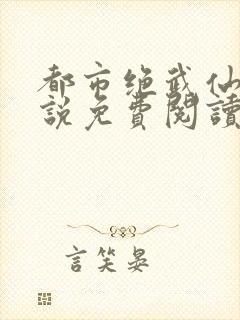 都市绝武仙
説免費閱讀
言笑晏